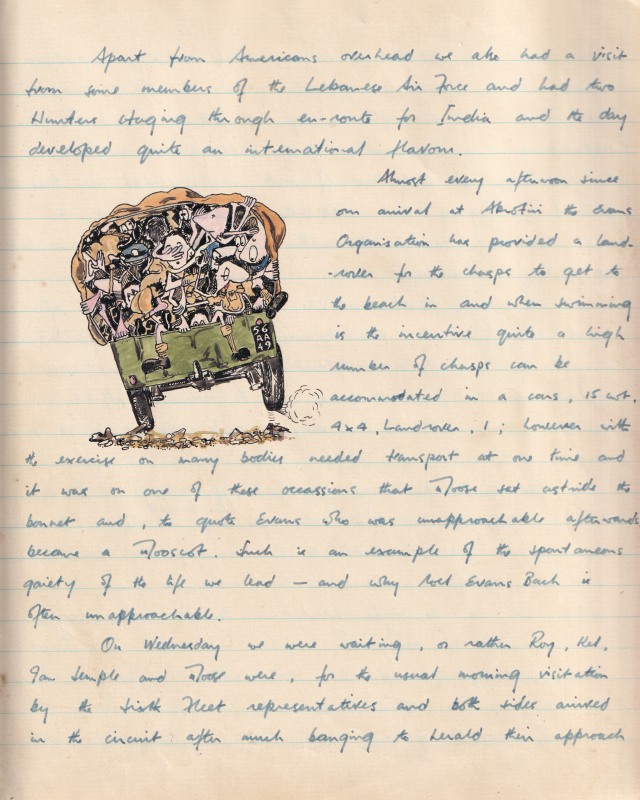 Apart from Americans overhead we also had a visit
from some members of the Lebanese Air Force and had two
Hunters staging through en-route for India and the day
developed quite an international flavour.
Almost every afternoon since
our arrival at Akrotiri the Evans
Organisation has provided a land-
-rover for the chaps to get to
the beach in and when swimming
is the incentive quite a high
number of chaps can be
accommodated in a cars, 15 cwt.
4x4, Landrover, 1; however with
the exercise on many bodies needed transport at one time and
it was on one of these occassions that Moose sat astride the
bonnet and, to quote Evans who was unapproachable afterwards
became a Mooscot. Such is an example of the spontaneous
gaiety of the life we lead — and why Evans Bach is
often unapproachable.
On Wednesday we were waiting, or rather Roy,
Ian Semple and Moose were, for the usual morning visitation
by the Sixth Fleet representatives and both sides arrived
in the circuit after much banging to herald their approach